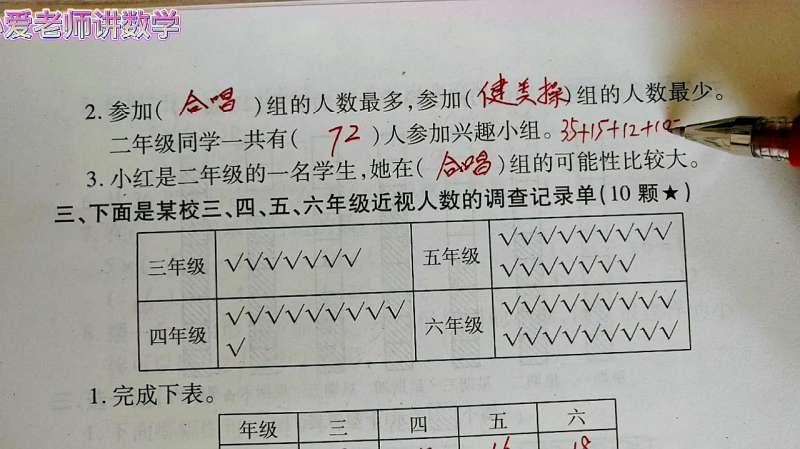 爱老师讲数学
2. 参加( 合唱 )组的人数最多,参加(健美操)组的人数最少。
二年级同学一共有( 72 )人参加兴趣小组。35+15+12+10=
3. 小红是二年级的一名学生,她在( 合唱 )组的可能性比较大。
三、下面是某校三、四、五、六年级近视人数的调查记录单(10 颗★)
三年级 √√√√√√√ 五年级 √√√√√√√√√ √√√√√√√
四年级 √√√√√√√√√ √ 六年级 √√√√√√√√√ √√√√√√√√√
1. 完成下表。
年级 三 四 五 六
16 18